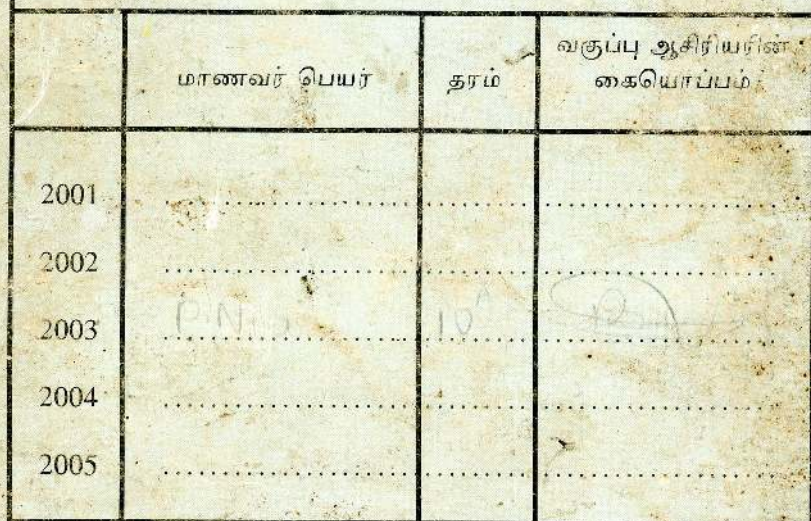 மாணவர் பெயர் தரம் வகுப்பு ஆசிரியரின் கையொப்பம்
2001
2002
2003 10 A
2004
2005